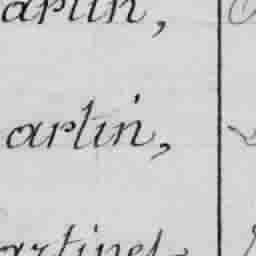 artin,
artin,
artinet